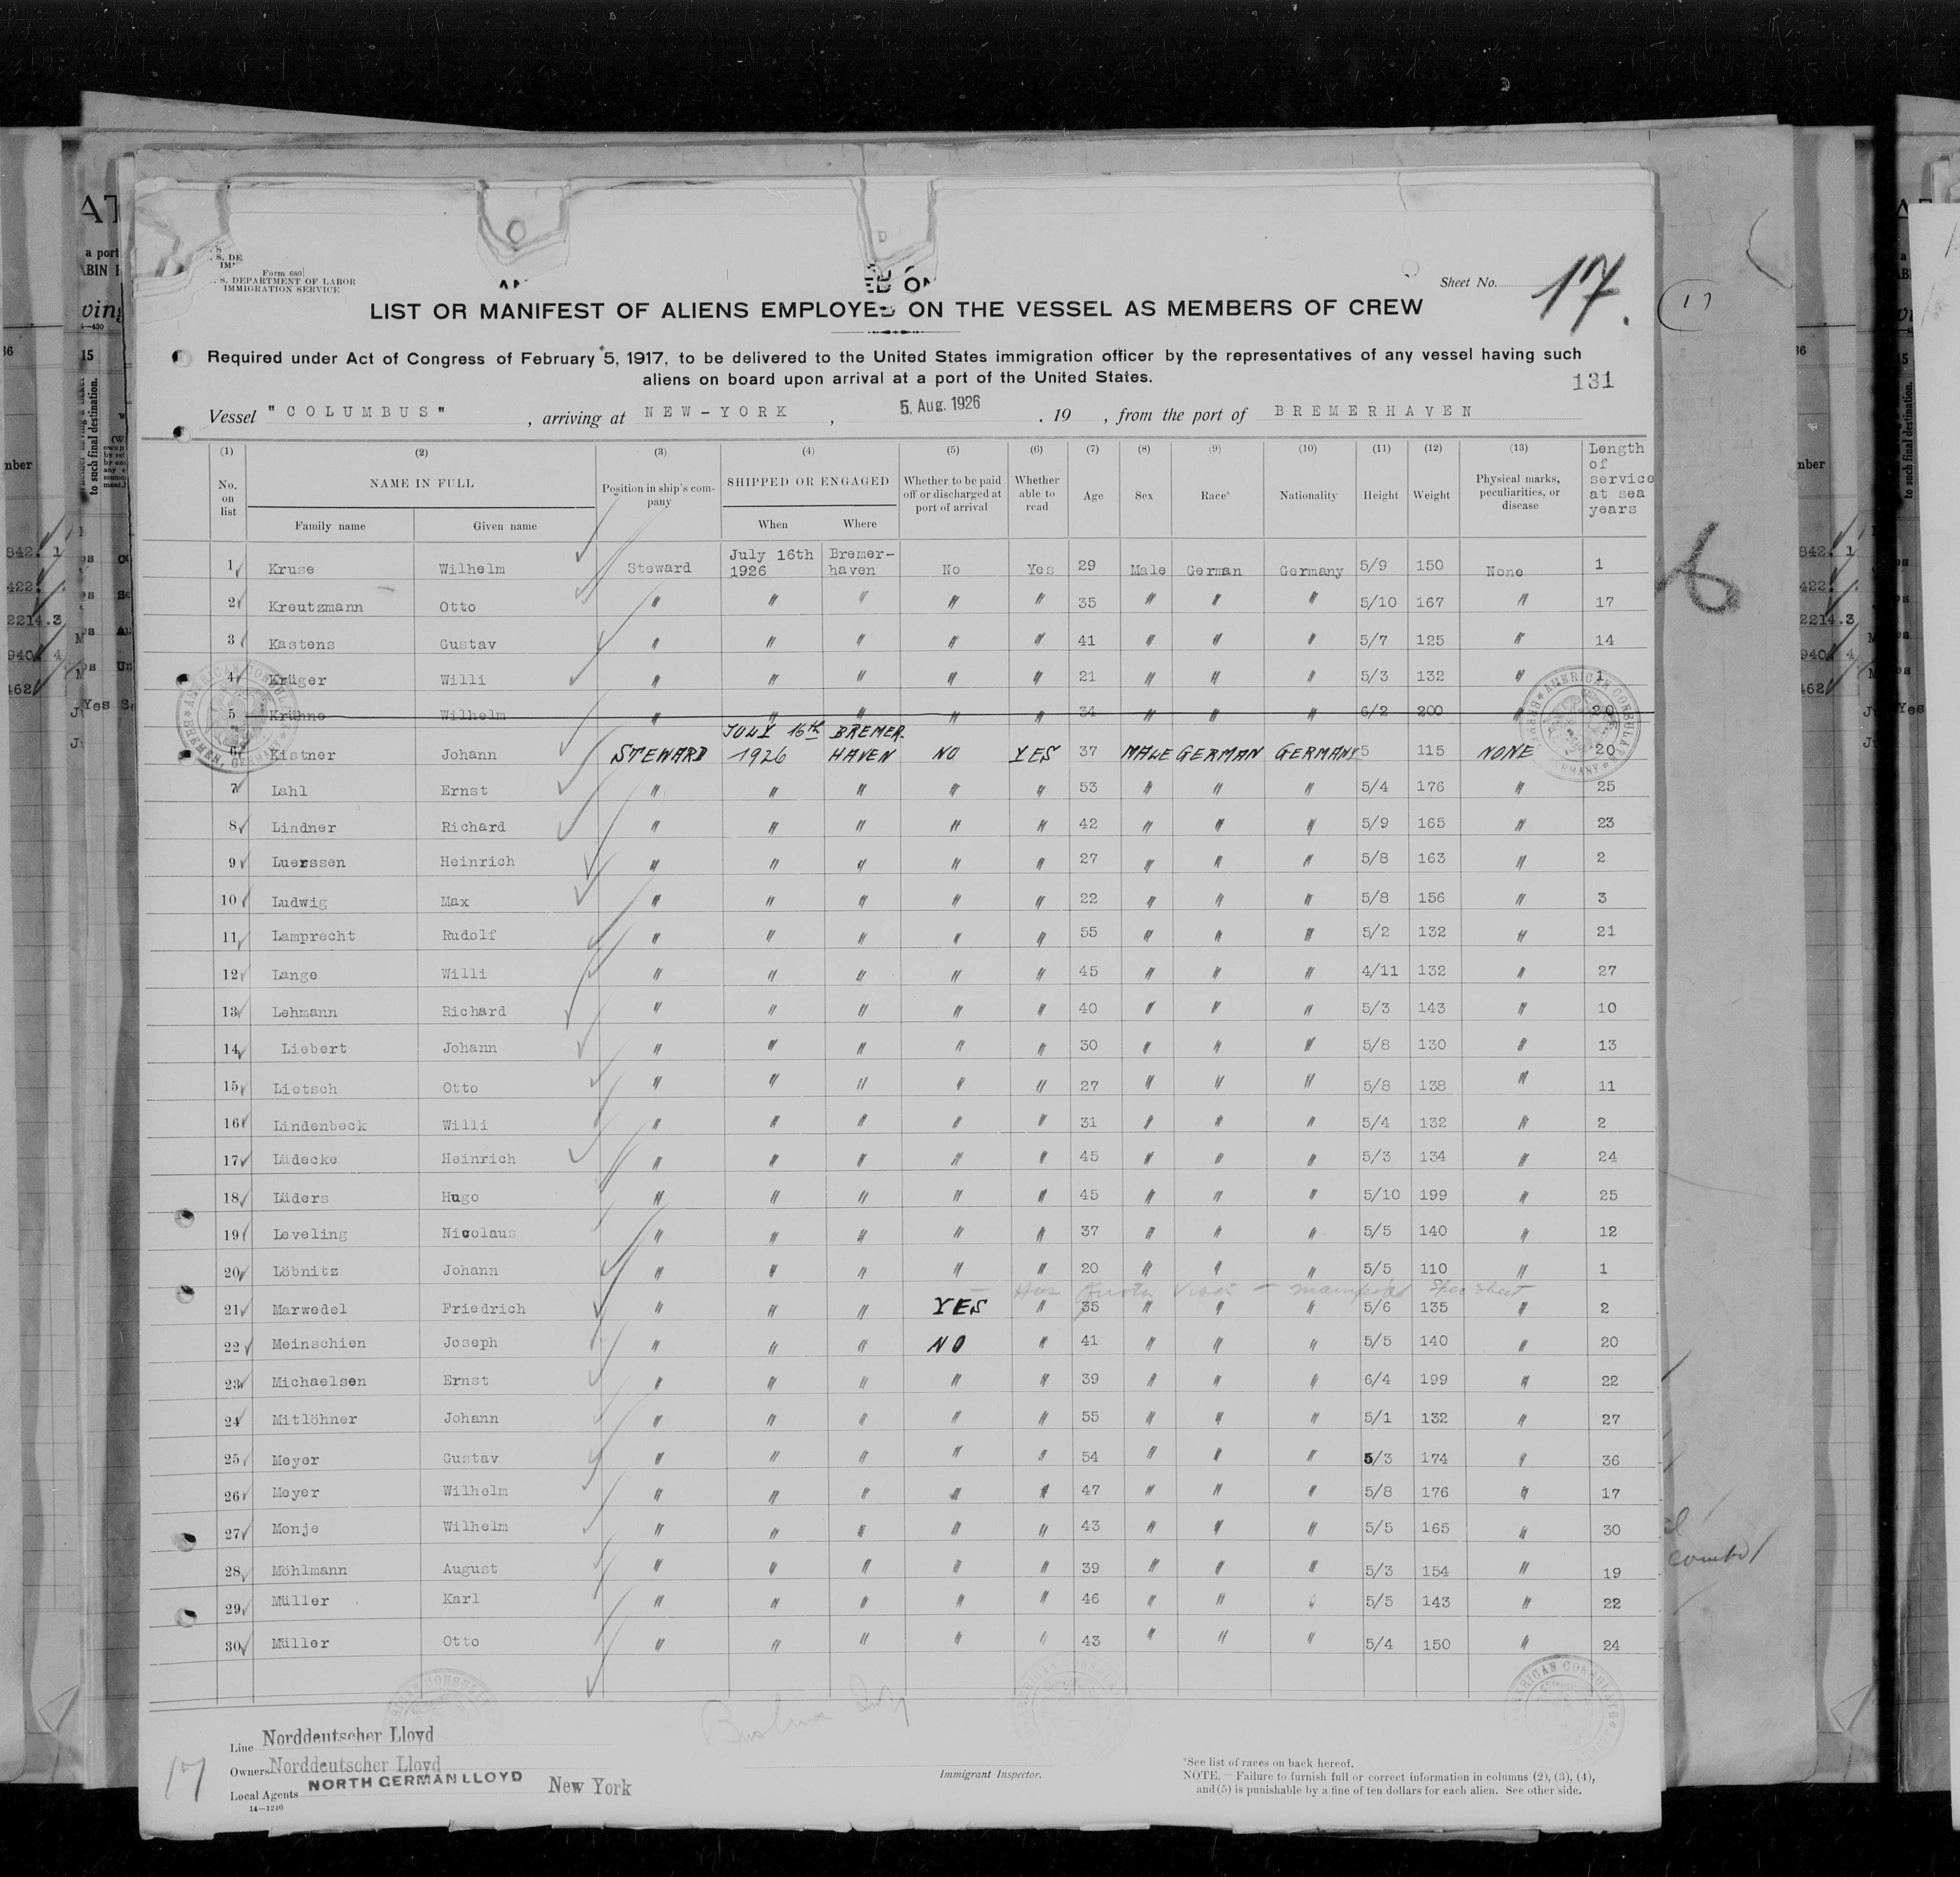 Form 680
U. S. DEPARTMENT OF LABOR
IMMIGRATION SERVICE
Sheet No. 17.
LIST OR MANIFEST OF ALIENS EMPLOYED ON THE VESSEL AS MEMBERS OF CREW
Required under Act of Congress of February 5, 1917, to be delivered to the United States immigration officer by the representatives of any vessel having such
aliens on board upon arrival at a port of the United States.
131
Vessel "COLUMBUS", arriving at NEW-YORK, 5. Aug. 1926, 19 , from the port of BREMERHAVEN
(1) (2) (3) (4) (5) (6) (7) (8) (9) (10) (11) (12) (13)
No. on list NAME IN FULL Family name Given name Position in ship's company SHIPPED OR ENGAGED When Where Whether to be paid off or discharged at port of arrival Whether able to read Age Sex Race* Nationality Height Weight Physical marks, peculiarities, or disease Length of service at sea years
1 Kruse Wilhelm Steward July 16th 1926 Bremer-haven No Yes 29 Male German Germany 5/9 150 None 1
2 Kreutzmann Otto " " " " " 35 " " " 5/10 167 " 17
3 Kastens Gustav " " " " " 41 " " " 5/7 125 " 14
4 Krüger Willi " " " " " 21 " " " 5/3 132 " 1
5 Krühne Wilhelm " " " " " 34 " " " 6/2 200 " 20
6 Kistner Johann STEWARD JULY 16th 1926 BREMER HAVEN NO YES 37 MALE GERMAN GERMANY 5 115 NONE 20
7 Lahl Ernst " " " " " 53 " " " 5/4 176 " 25
8 Lindner Richard " " " " " 42 " " " 5/9 165 " 23
9 Luerssen Heinrich " " " " " 27 " " " 5/8 163 " 2
10 Ludwig Max " " " " " 22 " " " 5/8 156 " 3
11 Lamprecht Rudolf " " " " " 55 " " " 5/2 132 " 21
12 Lange Willi " " " " " 45 " " " 4/11 132 " 27
13 Lehmann Richard " " " " " 40 " " " 5/3 143 " 10
14 Liebert Johann " " " " " 30 " " " 5/8 130 " 13
15 Lietsch Otto " " " " " 27 " " " 5/8 138 " 11
16 Lindenbeck Willi " " " " " 31 " " " 5/4 132 " 2
17 Lüdecke Heinrich " " " " " 45 " " " 5/3 134 " 24
18 Lüders Hugo " " " " " 45 " " " 5/10 199 " 25
19 Leveling Nicolaus " " " " " 37 " " " 5/5 140 " 12
20 Löbnitz Johann " " " " " 20 " " " 5/5 110 " 1
Has Quota Visa - manifested Spec sheet
21 Marwedel Friedrich " " " YES " 35 " " " 5/6 135 " 2
22 Meinschien Joseph " " " NO " 41 " " " 5/5 140 " 20
23 Michaelsen Ernst " " " " " 39 " " " 6/4 199 " 22
24 Mitlöhner Johann " " " " " 55 " " " 5/1 132 " 27
25 Meyer Gustav " " " " " 54 " " " 5/3 174 " 36
26 Meyer Wilhelm " " " " " 47 " " " 5/8 176 " 17
27 Monje Wilhelm " " " " " 43 " " " 5/5 165 " 30
28 Möhlmann August " " " " " 39 " " " 5/3 154 " 19
29 Müller Karl " " " " " 46 " " " 5/5 143 " 22
30 Müller Otto " " " " " 43 " " " 5/4 150 " 24
17
Line Norddeutscher Lloyd
Owners Norddeutscher Lloyd
Local Agents NORTH GERMAN LLOYD New York
14—1240
Immigrant Inspector.
*See list of races on back hereof.
NOTE.—Failure to furnish full or correct information in columns (2), (3), (4),
and (5) is punishable by a fine of ten dollars for each alien. See other side.